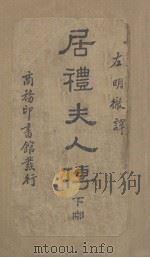 左明徹譯
居禮夫人傳
下冊
商務印書館發行
www.mtoou.info